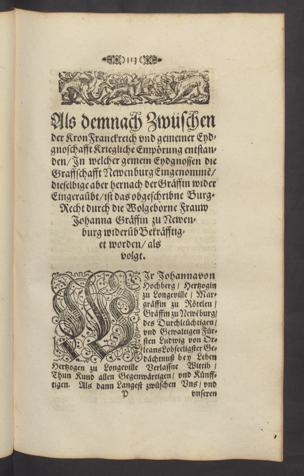 113
Als demnach Zwüschen
der Kron Franckreich vnd gemeiner Eyd-
gnoschafft Kriegliche Empörung entstan-
den/ In welcher gemein Eydgnossen die
Graffschafft Newenburg Eingenommē/
dieselbige aber hernach der Gräffin wider
Eingeraübt/ ist das obgeschribne Burg-
Recht durch die Wolgeborne Frauw
Johanna Gräffin zu Newen-
burg widerüb Bekräfftig-
et worden/ als
volgt.
WJr Johanna von
Hochberg/ Hertzogin
zu Longeville/ Mar-
gräffin zu Rötelen/
Gräffin zu Newēburg/
des Durchleüchtigen/
vnd Gewaltigen Für-
sten Ludwig von Or-
leans Lobseeligster Ge-
dächtnuß bey Leben
Hertzogen zu Longeville Verlassne Wittib/
Thun Kund allen Gegenwärtigen/ vnd Künff-
tigen. Als dann Langest zwüschen Vns/ vnd
P vnseren